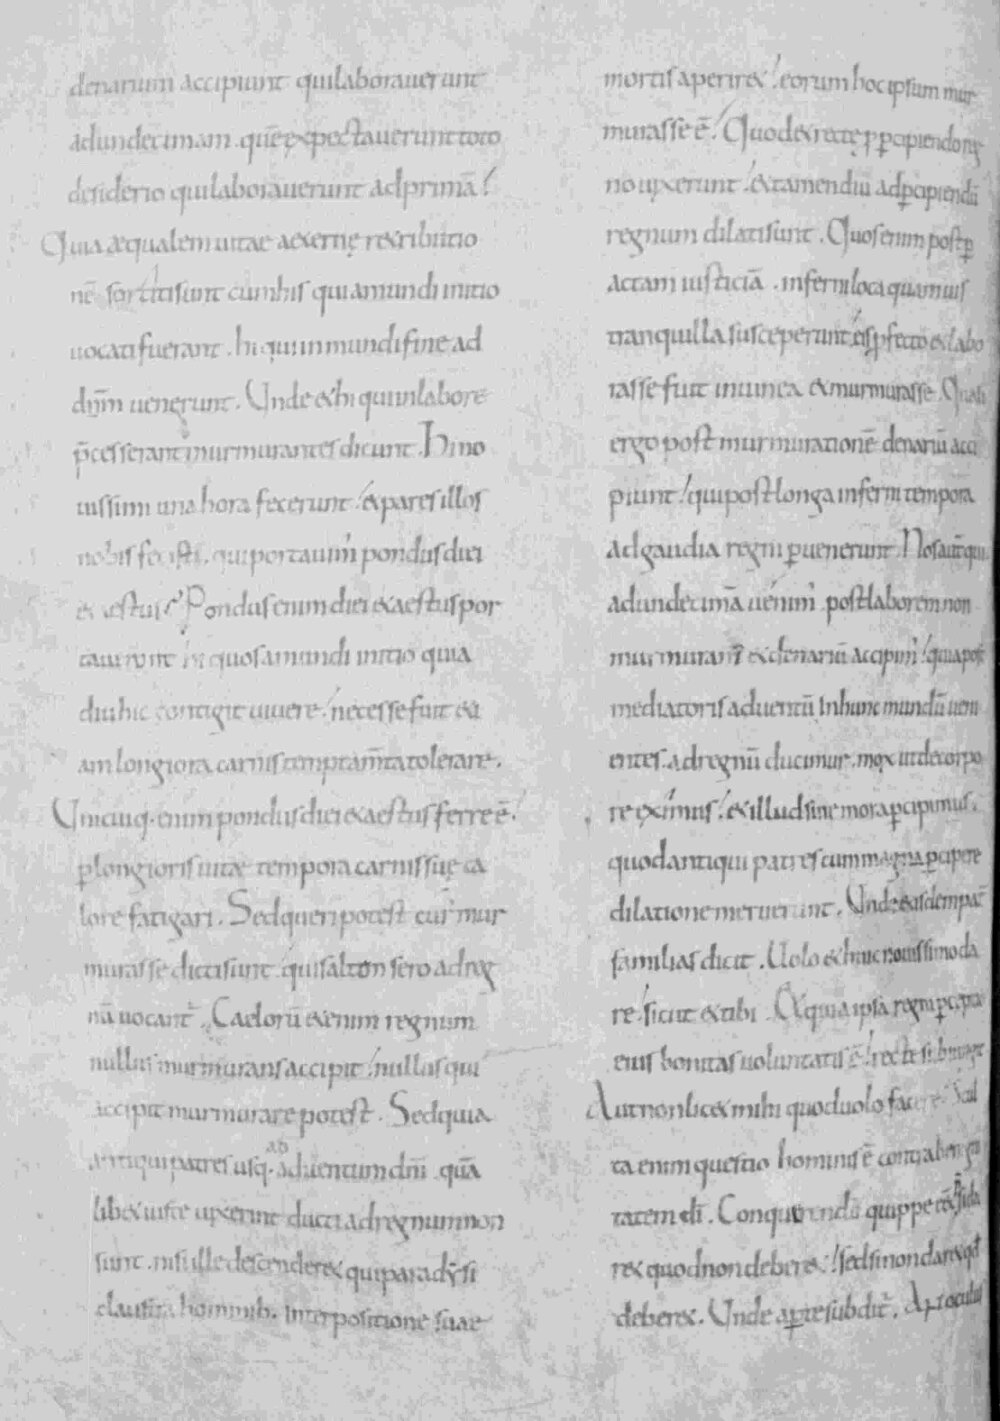 denarium accipiunt qui laboraverunt
ad undecimam . quē expectaverunt toto
desiderio qui laboraverunt ad primā !
Quia æqualem vitae aeternę retributio
nē sortiti sunt cum his qui a mundi initio
vocati fuerant . hi qui in mundi fine ad
dn̄m venerunt . Unde & hi qui in labore
p̄cesserant murmurantes dicunt . Hi no
vissimi una hora fecerunt ! & pares illos
nobis fecisti . qui portavim' pondus diei
& aestus ? Pondus enim diei & aestus por
taverunt hi quos a mundi initio quia
diu hic contigit vivere ! necesse fuit &i
am longiora carnis temptam̄ta tolerare .
Unicuiq. enim pondus diei & aestus ferre ē !
p longioris vitae tempora carnis suę ca
lore fatigari . Sed queri potest cur mur
murasse dicti sunt . qui saltem sero ad reg
nū vocant' . Caelorū &enim regnum
nullus murmurans accipit ! nullus qui
accipit murmurare potest . Sed quia
antiqui patres usq. ad adventum dn̄i . quā
lib& iuste vixerint ducti ad regnum non
sunt . nisi ille descender& qui paradysi
claustra hominib. interpositione suae
mortis aperir& ! eorum hoc ipsum mur
murasse ē . Quod & rectę p pcipiendo reg
no vixerunt ! & tamen diu ad pcipiendū
regnum dilati sunt . Quos enim post p
actam iusticiā . inferni loca quamvis
tranquilla susceperunt ! eis pfecto & labo
rasse fuit in vinea & murmurasse . Quasi
ergo post murmurationē denariū acci
piunt ! qui post longa inferni tempora
ad gaudia regni pvenerunt . Nos aut̄ qui
ad undecimā venim' . post laborem non
murmuram' & denariū accipim' ! quia post
mediatoris adventū In hunc mundū veni
entes . ad regnū ducimur . mox ut de corpo
re eximus ! & illud sine mora pcipimus .
quod antiqui patres cum magna pcipere
dilatione meruerunt . Unde & isdem pat'
familias dicit . Volo & huic novissimo da
re ! sicut & tibi . & quia ipsa regni pceptio
eius bonitas voluntatis ē ! recte subiungit
Aut non lic& mihi quod volo facere . Stul
ta enim questio hominis ē contra benigni
tatem dī . Conquerendū quippe
r& quod non deber& ! sed si non dar& qđ
deber& . Unde apte subdit' . An oculus